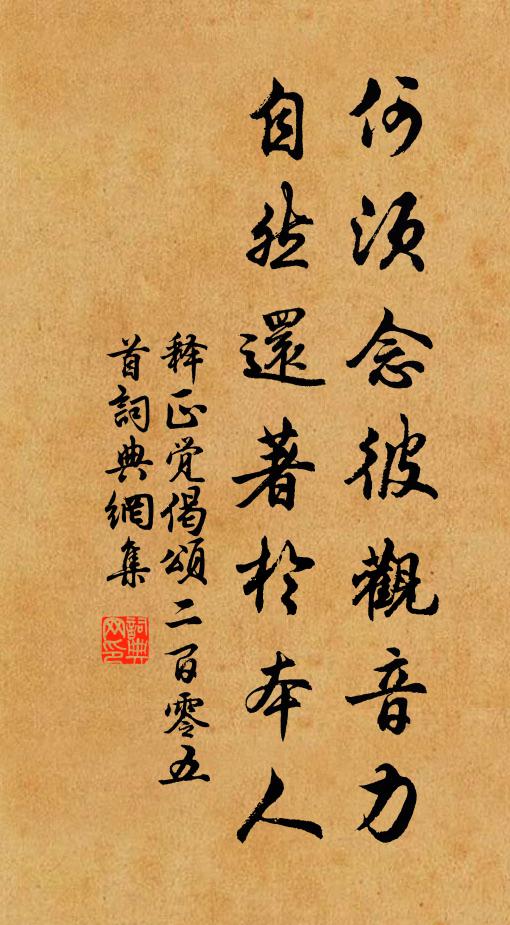 何須念彼觀音力
自然還著於本人
释正觉偈頌二百零五
首詞典網集
詞典網印